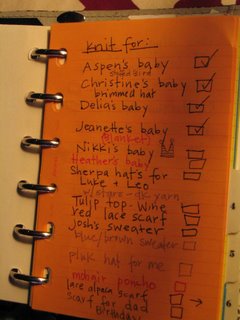 Knit for:
Aspen's baby
Christine's baby
brimmed hat
Delia's baby
Jeanette's baby
(Blanket)
Nikki's baby
Heather's baby
Sherpa hats for
Luke + Leo
w/stars - dk yarn
Tulip top - Wine
red lace scarf
Josh's sweater
blue/brown sweater
pink hat for me
mohair poncho
lace alpaca scarf
Scarf for dad
Birthday